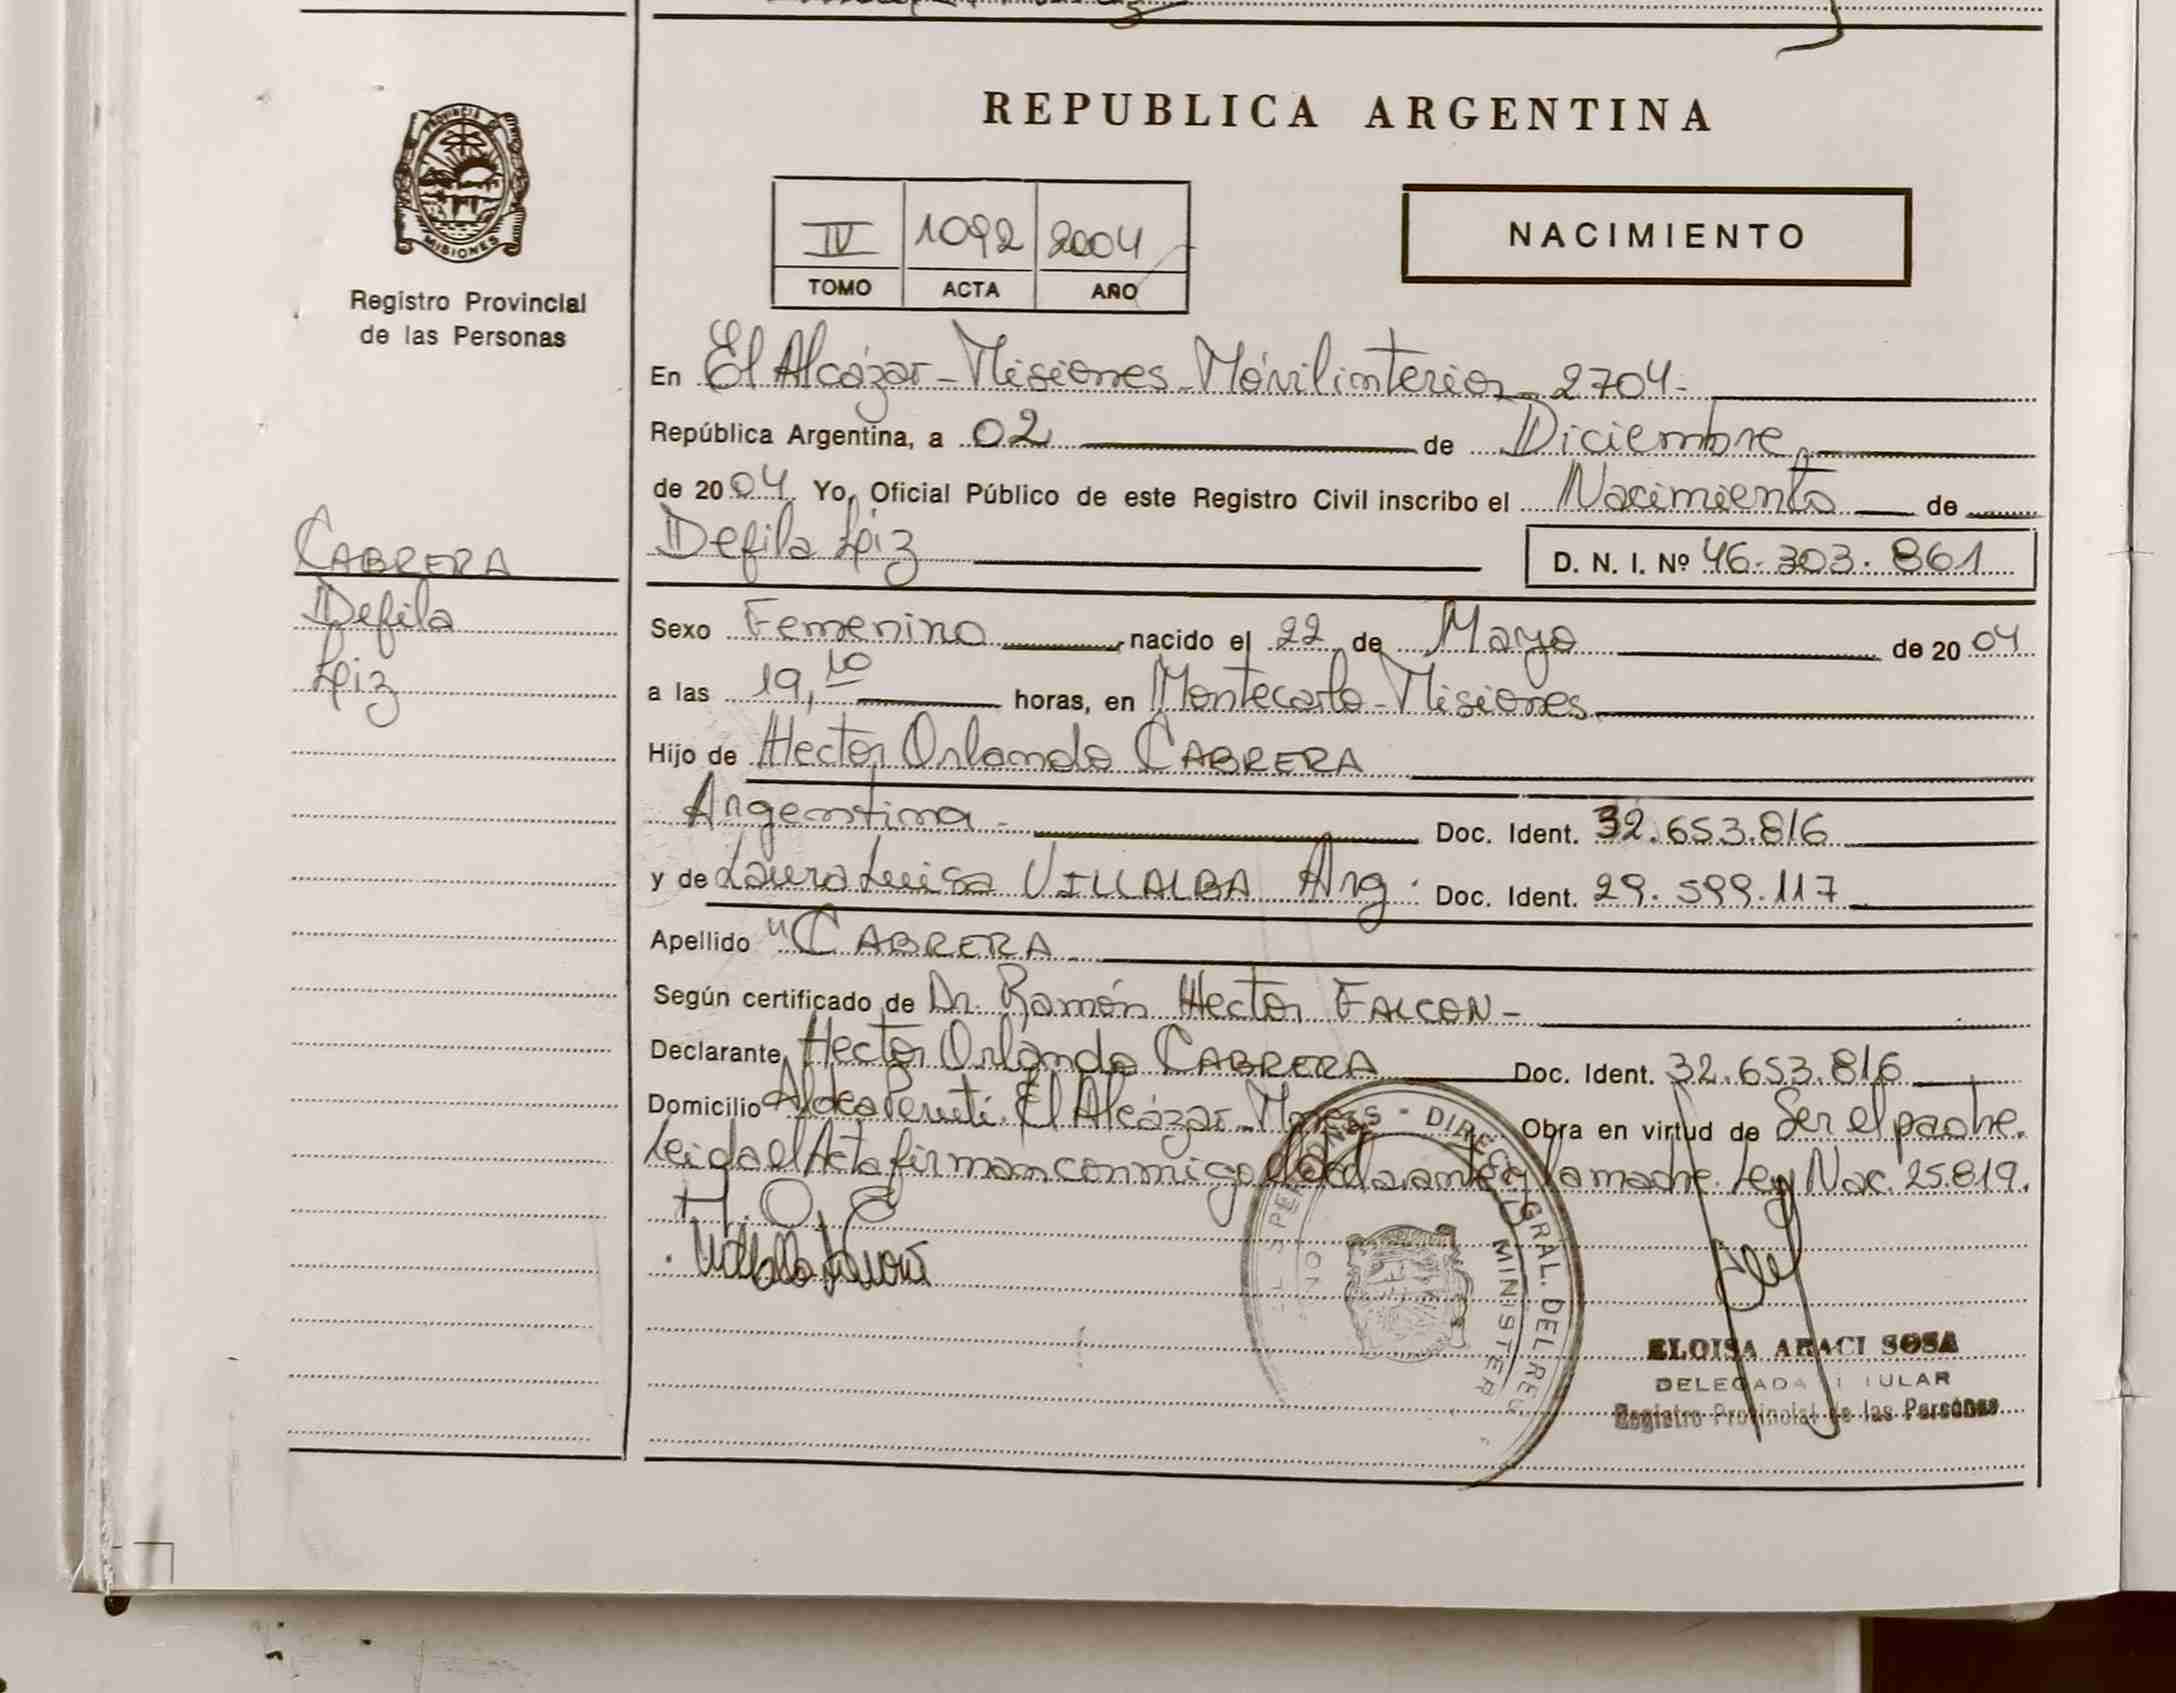 REPUBLICA ARGENTINA
PROVINCIA DE
MISIONES
Registro Provincial
de las Personas
IV 1092 2004
TOMO ACTA AÑO
NACIMIENTO
En El Alcázar - Misiones - Móvil interior - 2704 -
República Argentina, a 02 de Diciembre
de 2004 Yo, Oficial Público de este Registro Civil inscribo el Nacimiento de
Defila Liz
D. N. I. Nº 46.303.861
CABRERA
Defila
Liz
Sexo Femenino nacido el 22 de Mayo de 2004
a las 19,10 horas, en Montecarlo - Misiones
Hijo de Hector Orlando CABRERA
Argentina - Doc. Ident. 32.653.816
y de Laura Luisa VILLALBA Arg. Doc. Ident. 29.599.117
Apellido "CABRERA
Según certificado de Dr. Ramón Hector FALCON -
Declarante Hector Orlando CABRERA Doc. Ident. 32.653.816
Domicilio Aldea Perutí. El Alcázar - Mnes Obra en virtud de Ser el padre.
Leida el Acta firman conmigo el declarante y la madre. Ley Nac. 25.819.
H. O. C
Villalba Laura
PERSONAS - DIREC. GRAL. DEL REG
MINISTER
ELOISA ARACI SOSA
DELEGADA TITULAR
Registro Provincial de las Personas